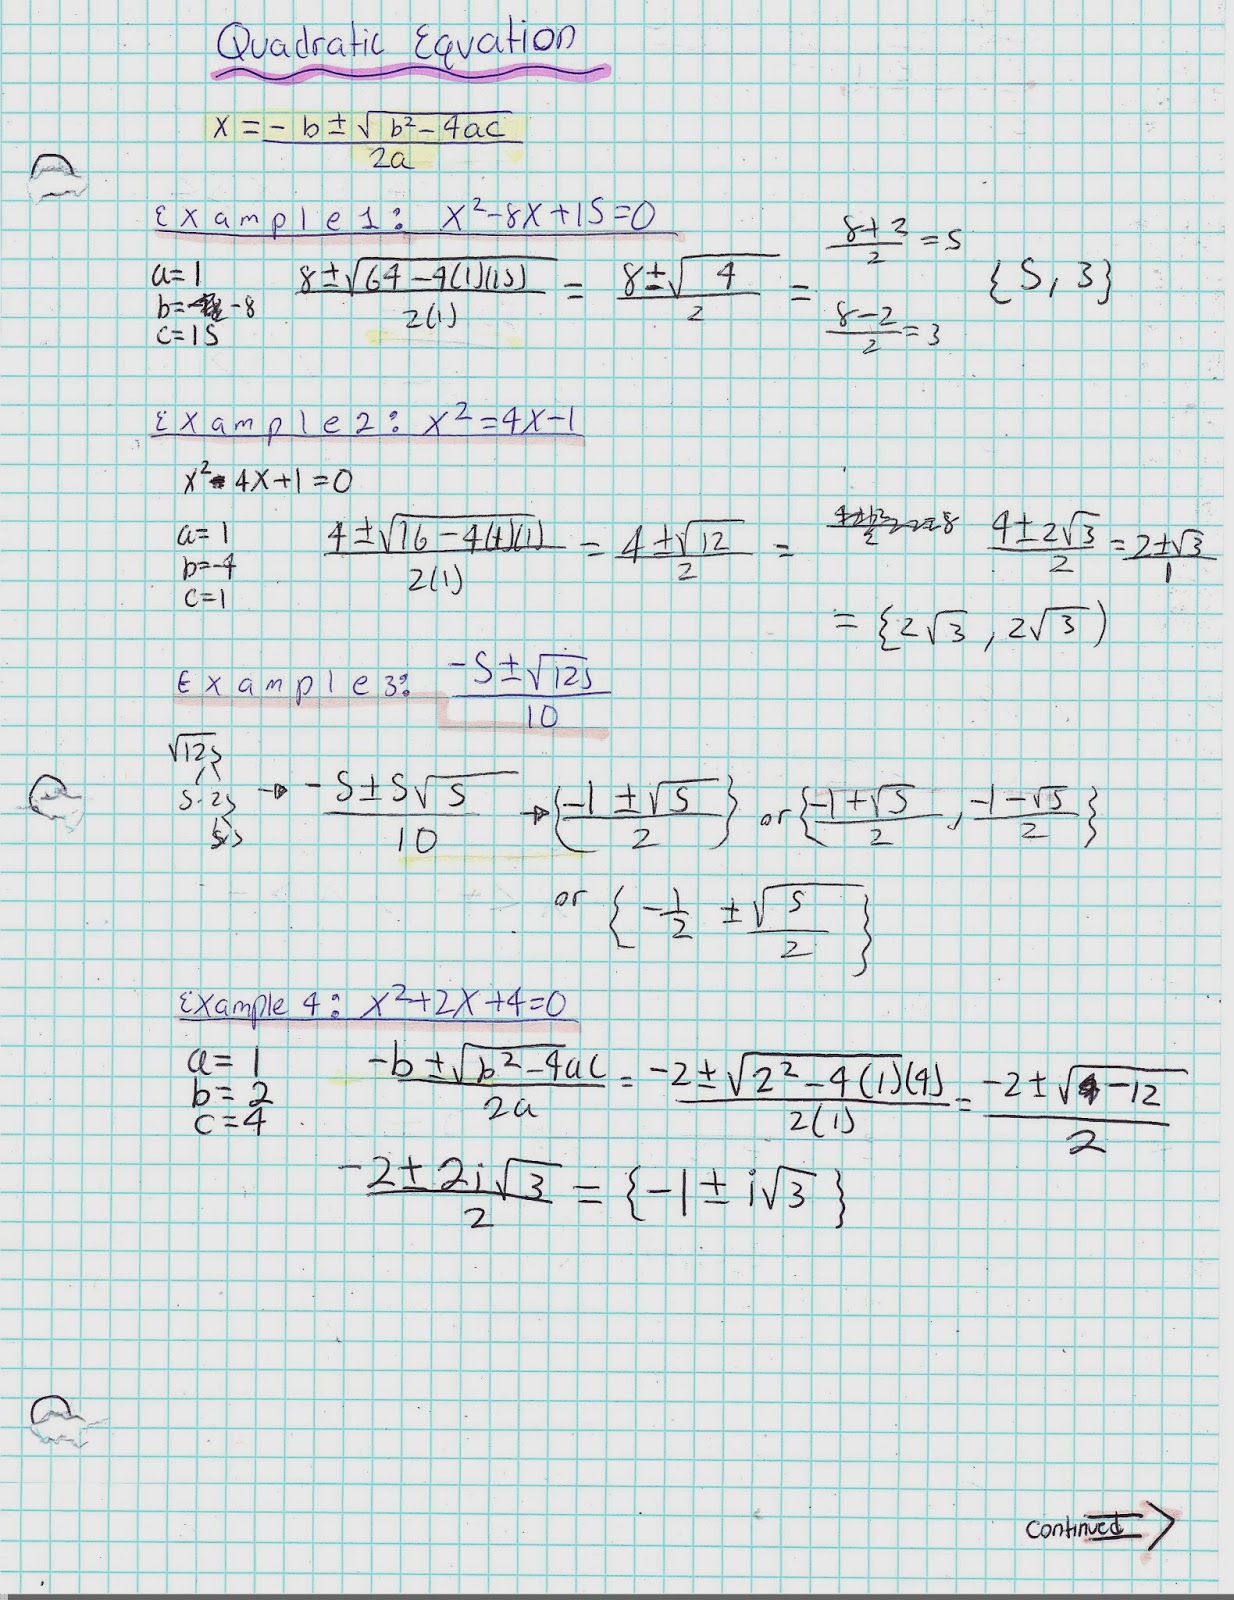 Quadratic Equation
x = -b ± √(b² - 4ac) / 2a
Example 1: x²-8x+15=0
a=1
b= -8
c=15
8±√(64-4(1)(15)) / 2(1) = 8±√4 / 2 =
8+2 / 2 = 5
8-2 / 2 = 3
{5, 3}
Example 2: x²=4x-1
x²-4x+1=0
a=1
b=-4
c=1
4±√(16-4(1)(1)) / 2(1) = 4±√12 / 2 = 4±2√3 / 2 = 2±√3 / 1
= {2√3, 2√3)
Example 3: -5±√125 / 10
√125
5·25
5·5
→ -5±5√5 / 10 → {-1±√5 / 2} or {-1+√5 / 2, -1-√5 / 2}
or {-1/2 ± √5/2}
Example 4: x²+2x+4=0
a=1
b=2
c=4
-b±√(b²-4ac) / 2a = -2±√(2²-4(1)(4)) / 2(1) = -2±√-12 / 2
-2±2i√3 / 2 = {-1±i√3}
continued